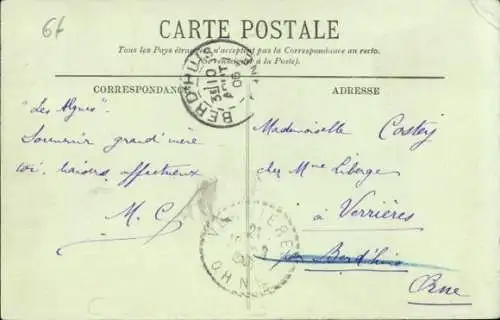 6f
CARTE POSTALE
Tous les Pays étrangers n'acceptent pas la Correspondance au recto.
(Se renseigner à la Poste).
CORRESPONDANCE
ADRESSE
BERD'HUIS
"Les Algues"
Souvenir grand'mère
baisers affectueux
M. C
Mademoiselle Costey
chez Mme Liberge
à Verrières
par Berd'huis
Orne
VERRIERES
ORNE